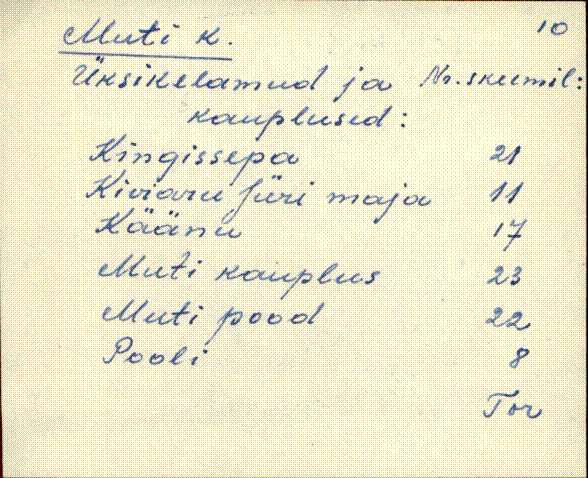 10
Muti k.
Üksikelamud ja Nr. skeemil:
kauplused:
Kingissepa 21
Kiviaru Jüri maja 11
Käänu 17
Muti kauplus 23
Muti pood 22
Pooli 8
Tor